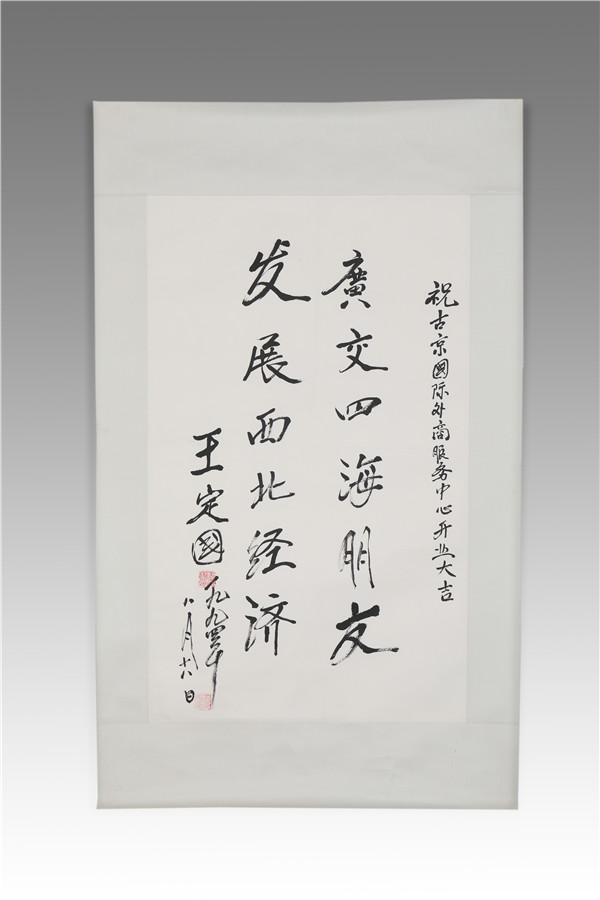 祝古京國际外商服务中心开业大吉
廣交四海朋友
发展西北经济
王定國
一九九四年
八月十八日